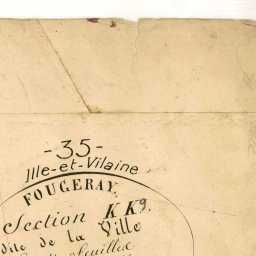 -35-
Ille-et-Vilaine
FOUGERAY.
Section K K9.
dite de la Ville
feuilles